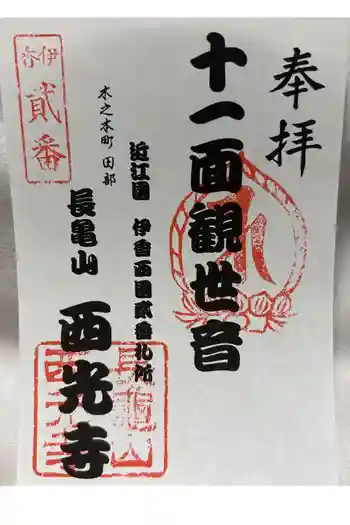 奉拝
十一面観世音
近江国 伊香西国貳番札所
木之本町 田部
長亀山 西光寺
伊香
貳番